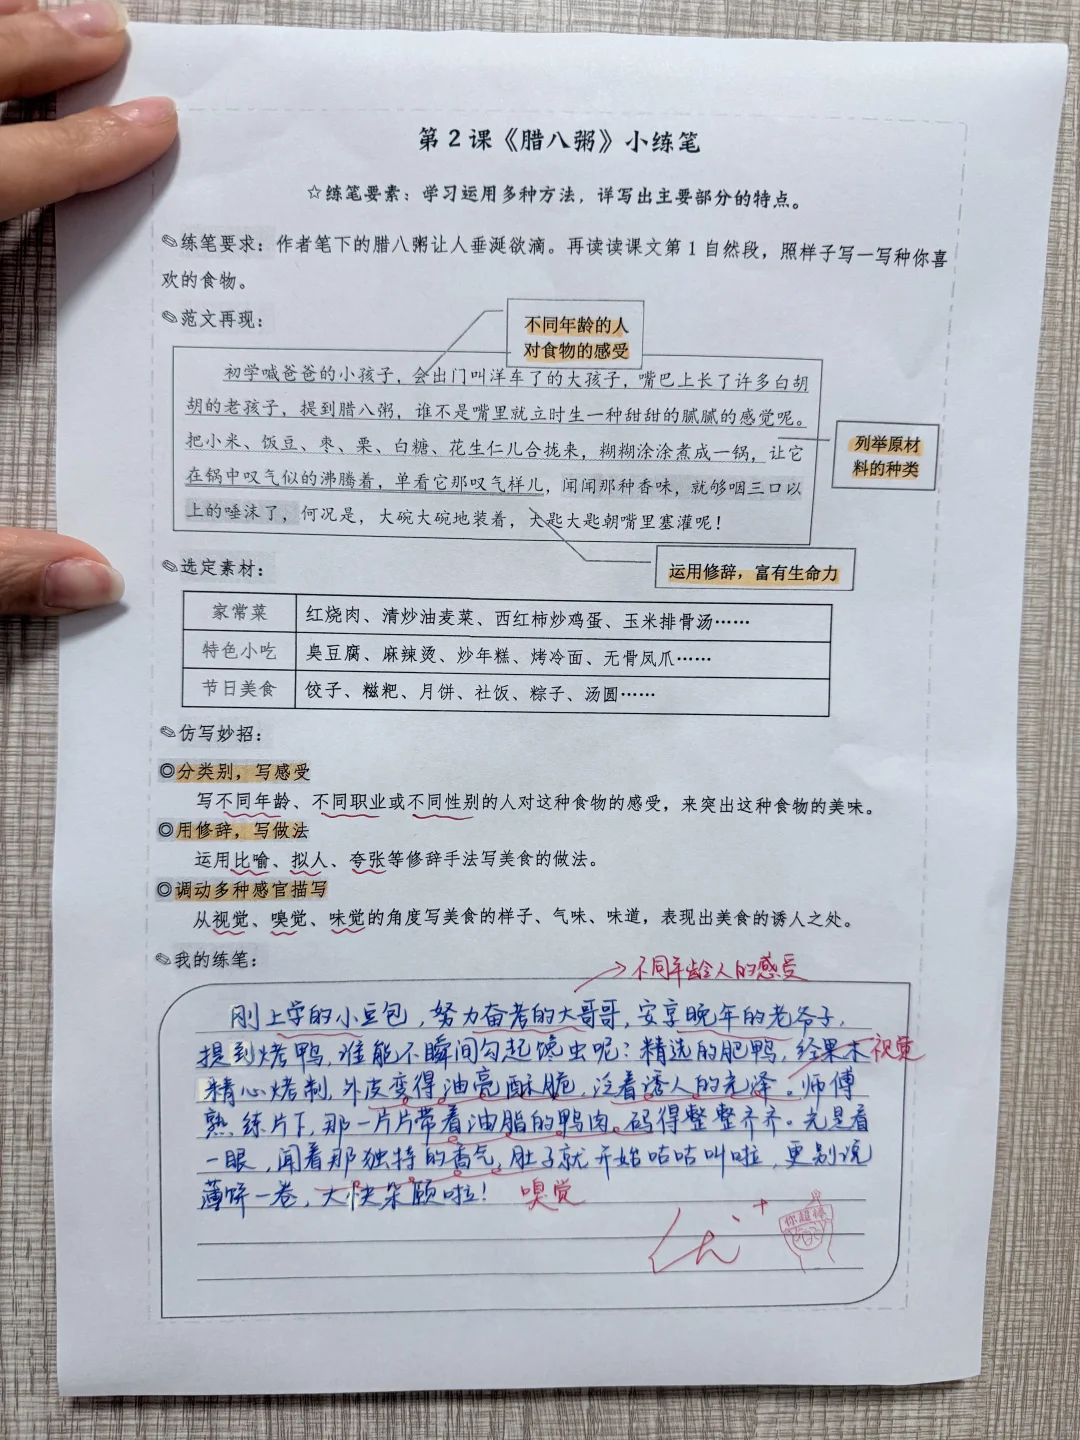 第2课《腊八粥》小练笔
☆练笔要素：学习运用多种方法，详写出主要部分的特点。
✎练笔要求：作者笔下的腊八粥让人垂涎欲滴。再读读课文第1自然段，照样子写一写种你喜
欢的食物。
✎范文再现：
不同年龄的人
对食物的感受
初学喊爸爸的小孩子，会出门叫洋车了的大孩子，嘴巴上长了许多白胡
胡的老孩子，提到腊八粥，谁不是嘴里就立时生一种甜甜的腻腻的感觉呢。
把小米、饭豆、枣、栗、白糖、花生仁儿合拢来，糊糊涂涂煮成一锅，让它
在锅中叹气似的沸腾着，单看它那叹气样儿，闻闻那种香味，就够咽三口以
上的唾沫了，何况是，大碗大碗地装着，大匙大匙朝嘴里塞灌呢！
列举原材
料的种类
运用修辞，富有生命力
✎选定素材：
家常菜 红烧肉、清炒油麦菜、西红柿炒鸡蛋、玉米排骨汤……
特色小吃 臭豆腐、麻辣烫、炒年糕、烤冷面、无骨凤爪……
节日美食 饺子、糍粑、月饼、社饭、粽子、汤圆……
✎仿写妙招：
◎分类别，写感受
写不同年龄、不同职业或不同性别的人对这种食物的感受，来突出这种食物的美味。
◎用修辞，写做法
运用比喻、拟人、夸张等修辞手法写美食的做法。
◎调动多种感官描写
从视觉、嗅觉、味觉的角度写美食的样子、气味、味道，表现出美食的诱人之处。
✎我的练笔：
不同年龄人的感受
刚上学的小豆包，努力奋考的大哥哥，安享晚年的老爷子，
提到烤鸭，谁能不瞬间勾起馋虫呢？精选的肥鸭，经果木 视觉
精心烤制，外皮变得油亮酥脆，泛着诱人的光泽。师傅
熟练片下，那一片片带着油脂的鸭肉，码得整整齐齐。光是看
一眼，闻着那独特的香气，肚子就开始咕咕叫啦，更别说
薄饼一卷，大快朵颐啦！ 嗅觉
优+
你超棒